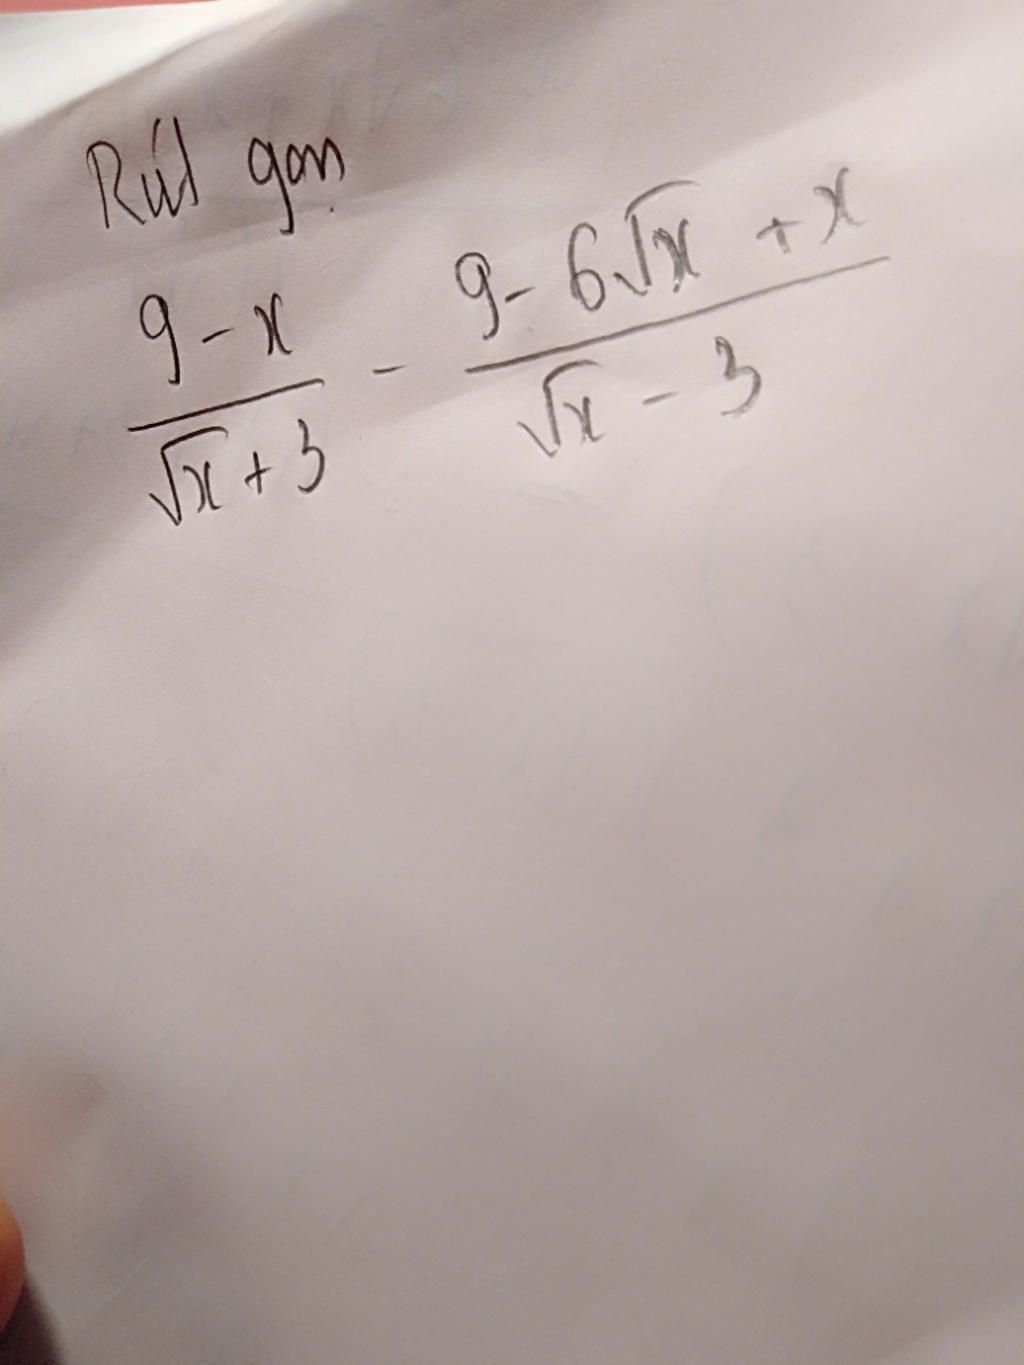 Rút gọn
9 - x / √x + 3 - 9 - 6√x + x / √x - 3